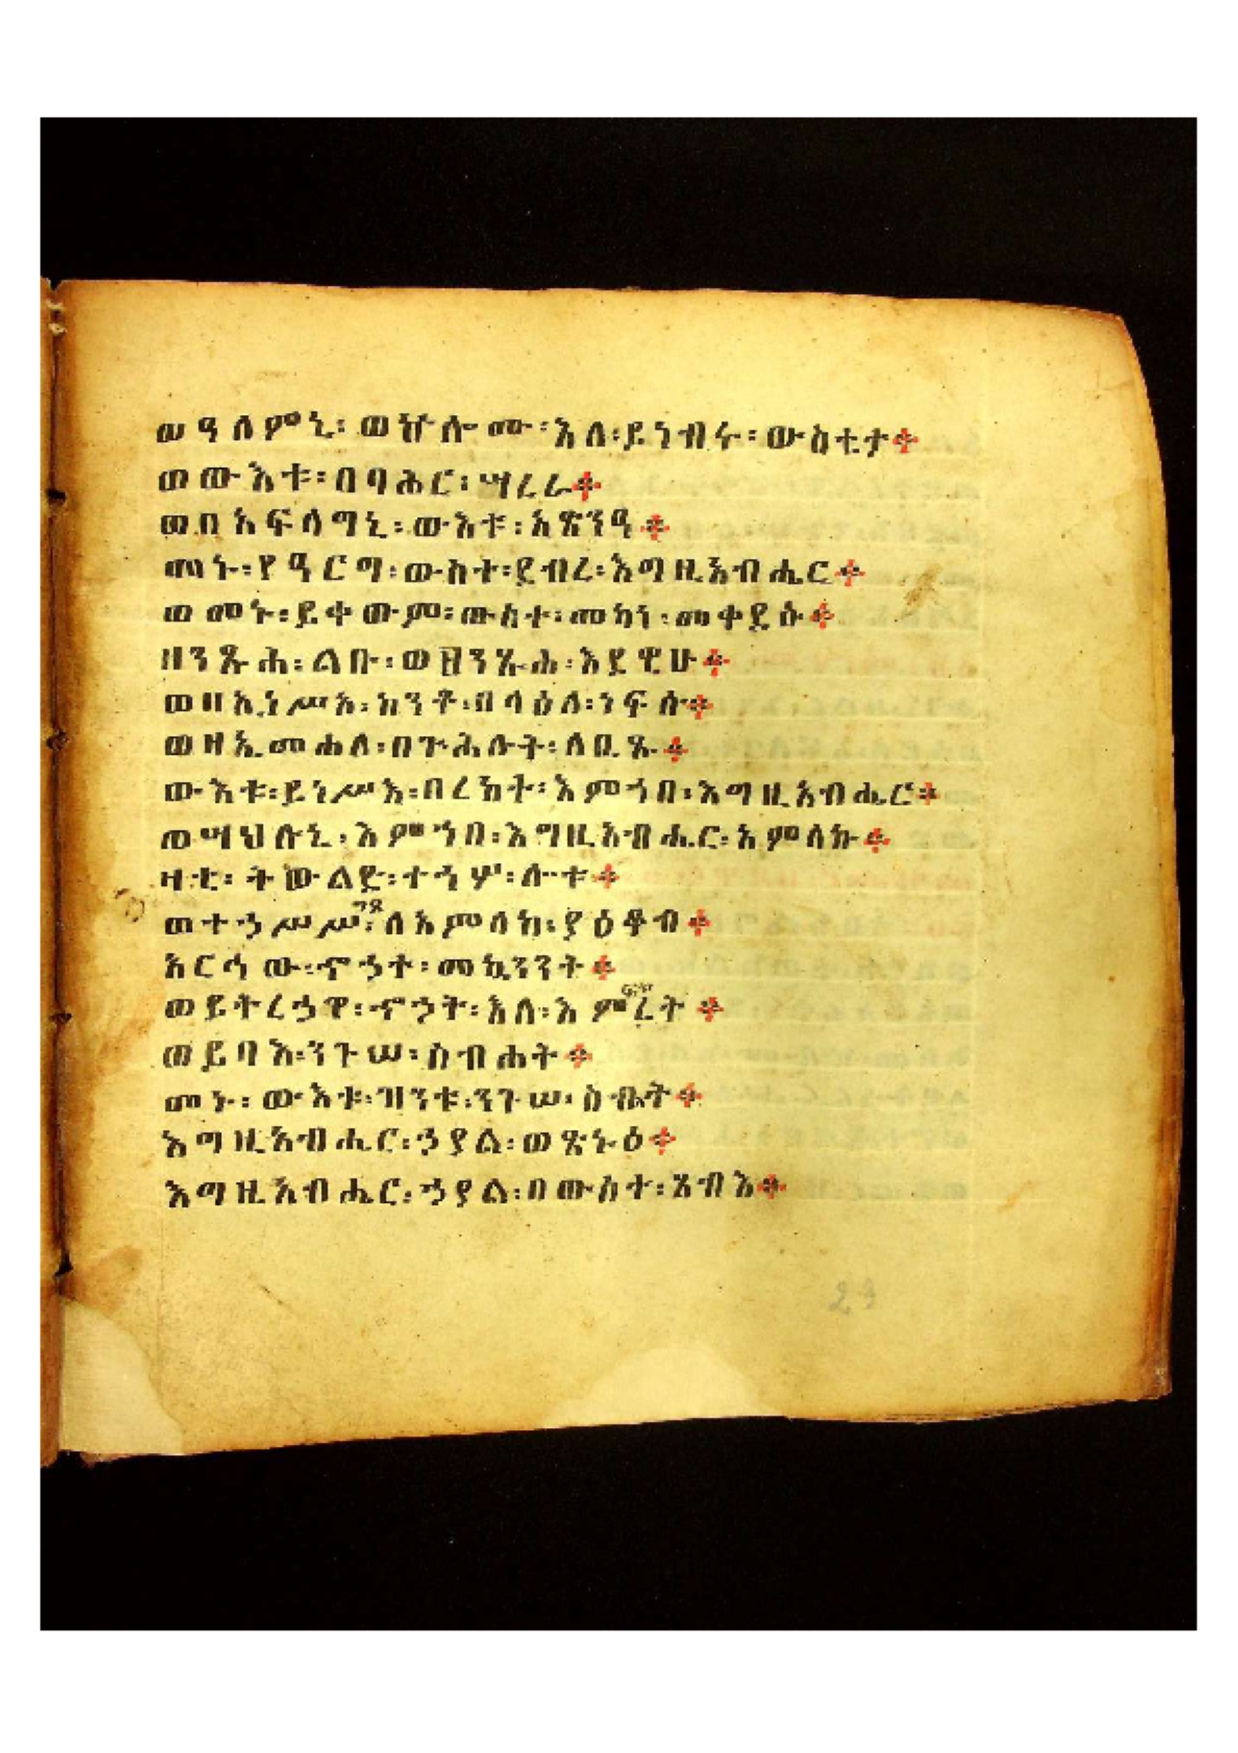 ወዓለምኒ፡ ወኵሎሙ፡እለ፡ይነብሩ፡ ውስቲታ፨
ወውእቱ፡በባሕር፡ሣረራ፨
ወበአፍላግኒ፡ውእቱ፡አጽንዓ፨
መኑ፡የዓርግ፡ውስተ፡ደብረ፡እግዚአብሔር፨
ወመኑ፡ይቀውም፡ውስተ፡መካነ፡መቀደሱ፨
ዘንጹሕ፡ልቡ፡ወዘንጹሕ፡እደዊሁ፨
ወዘኢነሥአ፡ከንቶ፡በላዕለ፡ነፍሱ፨
ወዘኢመሐለ፡በጕሕሉት፡ለቢጹ፨
ውእቱ፡ይነሥእ፡በረከት፡እምኀበ፡እግዚአብሔር፨
ወሣህሉኒ፡እምኀበ፡እግዚአብሔር፡አምላኩ፨
ዛቲ፡ትውልድ፡ተኀሦ፡ሎቱ፨
ወተኃሥሥ፡ገጸ፡ለአምላከ፡ያዕቆብ፨
አርኅው፡ኆኃተ፡መኳንንት፨
ወይትረኃዋ፡ኆኃት፡እለ፡እምፍጥረት፨
ወይባእ፡ንጉሠ፡ስብሐት፨
መኑ፡ውእቱ፡ዝንቱ፡ንጉሠ፡ስብሐት፨
እግዚአብሔር፡ኃያል፡ወጽኑዕ፨
እግዚአብሔር፡ኃያል፡በውስተ፡ጸብእ፨
23